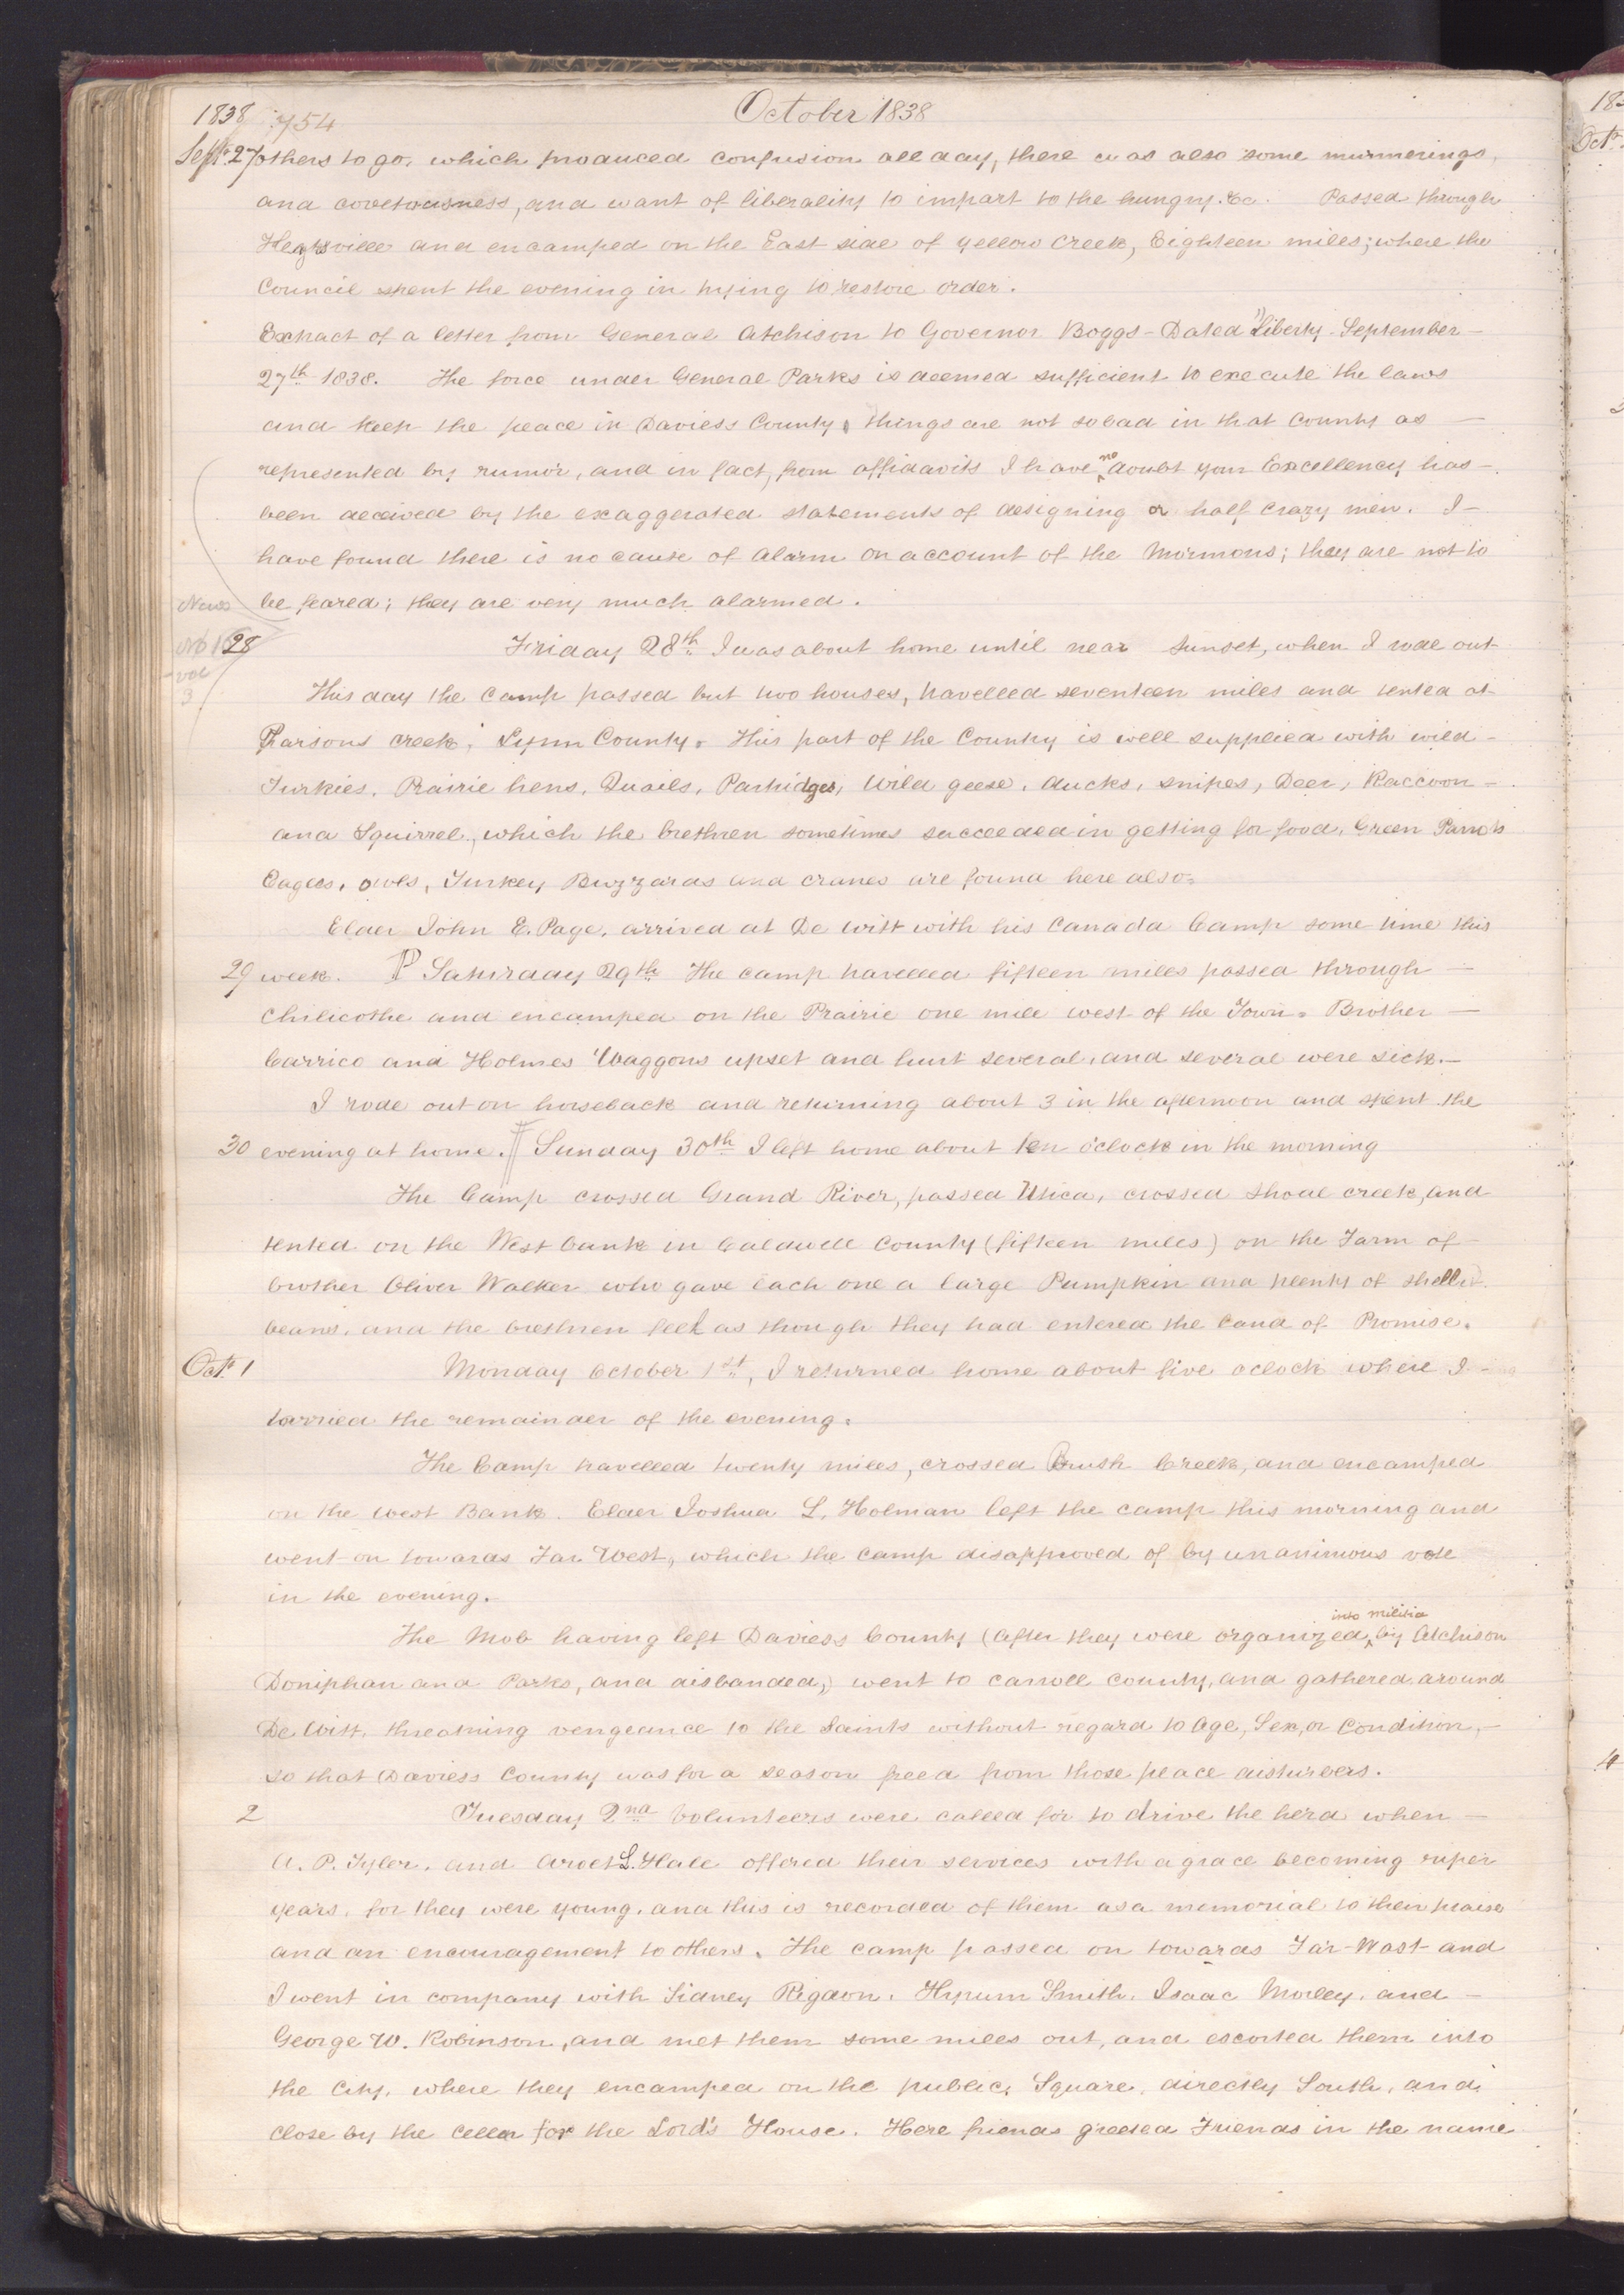 1838 754 October 1838
Sept. 27 others to go, which produced confusion all day, there was also some murmerings,
and covetousness, and want of liberality to impart to the hungry. &c. Passed through
and encamped on the East side of yellow Creek, Eighteen miles; where the
Council spent the evening in trying to restore order.
Extract of a letter from General Atchison to Governor Boggs - Dated "Liberty September -
27th 1838. The force under General Parks is deemed sufficient to execute the laws
and keep the peace in Daviess County, things are not so bad in that County as -
represented by rumor, and in fact, from affidavits I have no doubt your Excellency has -
been deceived by the exaggerated statements of designing or half crazy men. I -
have found there is no cause of alarm on account of the Mormons; they are not to
News be feared; they are very much alarmed.
No 1 28 Friday 28th I was about home until near sunset, when I rode out
vol
3 This day the Camp passed but two houses, travelled seventeen miles and tented at
Parsons creek, Lynn County. This part of the Country is well supplied with wild -
Turkies, Prairie hens, Quails, Partridges, Wild geese, ducks, snipes, Deer, Raccoon -
and Squirrel, which the brethren sometimes succeeded in getting for food, Green Parrots
Eagles, owls, Turkey Buzzards and cranes are found here also.
Elder John E. Page, arrived at De witt with his Canada Camp some time this
29 week. P Saturday 29th The camp travelled fifteen miles passed through -
Chilicothe and encamped on the Prairie one mile west of the Town. Brother -
Carrico and Holmes' Waggons upset and hurt several, and several were sick. -
I rode out on horseback and returning about 3 in the afternoon and spent the
30 evening at home. Sunday 30th I left home about ten o'clock in the morning
The Camp crossed Grand River, passed Utica, crossed Shoal creek, and
tented on the West bank in Caldwell County (fifteen miles) on the Farm of -
brother Oliver Walker who gave each one a large Pumpkin and plenty of shelled
beans, and the brethren feel as though they had entered the land of Promise.
Oct. 1 Monday October 1st, I returned home about five oclock where I -
tarried the remainder of the evening.
The Camp travelled twenty miles, crossed Brush Creek, and encamped
on the west Bank. Elder Joshua S. Holman left the camp this morning and
went on towards Far West, which the camp disapproved of by unanimous vote
in the evening.
into militia
The Mob having left Daviess County (after they were organized by Atchison
Doniphan and Parks, and disbanded,) went to carroll county, and gathered around
De Witt, threatning vengeance to the Saints without regard to Age, Sex, or Condition, -
so that Daviess County was for a season freed from those peace disturbers.
2 Tuesday 2nd Volunteers were called for to drive the herd when -
A. P. Tyler, and Aroet L. Hale offered their services with a grace becoming riper
years, for they were young, and this is recorded of them as a memorial to their praise
and an encouragement to others. The camp passed on towards Far-West and
I went in company with Sidney Rigdon, Hyrum Smith, Isaac Morley, and -
George W. Robinson, and met them some miles out, and escorted them into
the City, where they encamped on the public, Square, directly South, and
close by the cellar for the Lord's House. Here friends greeted Friends in the name